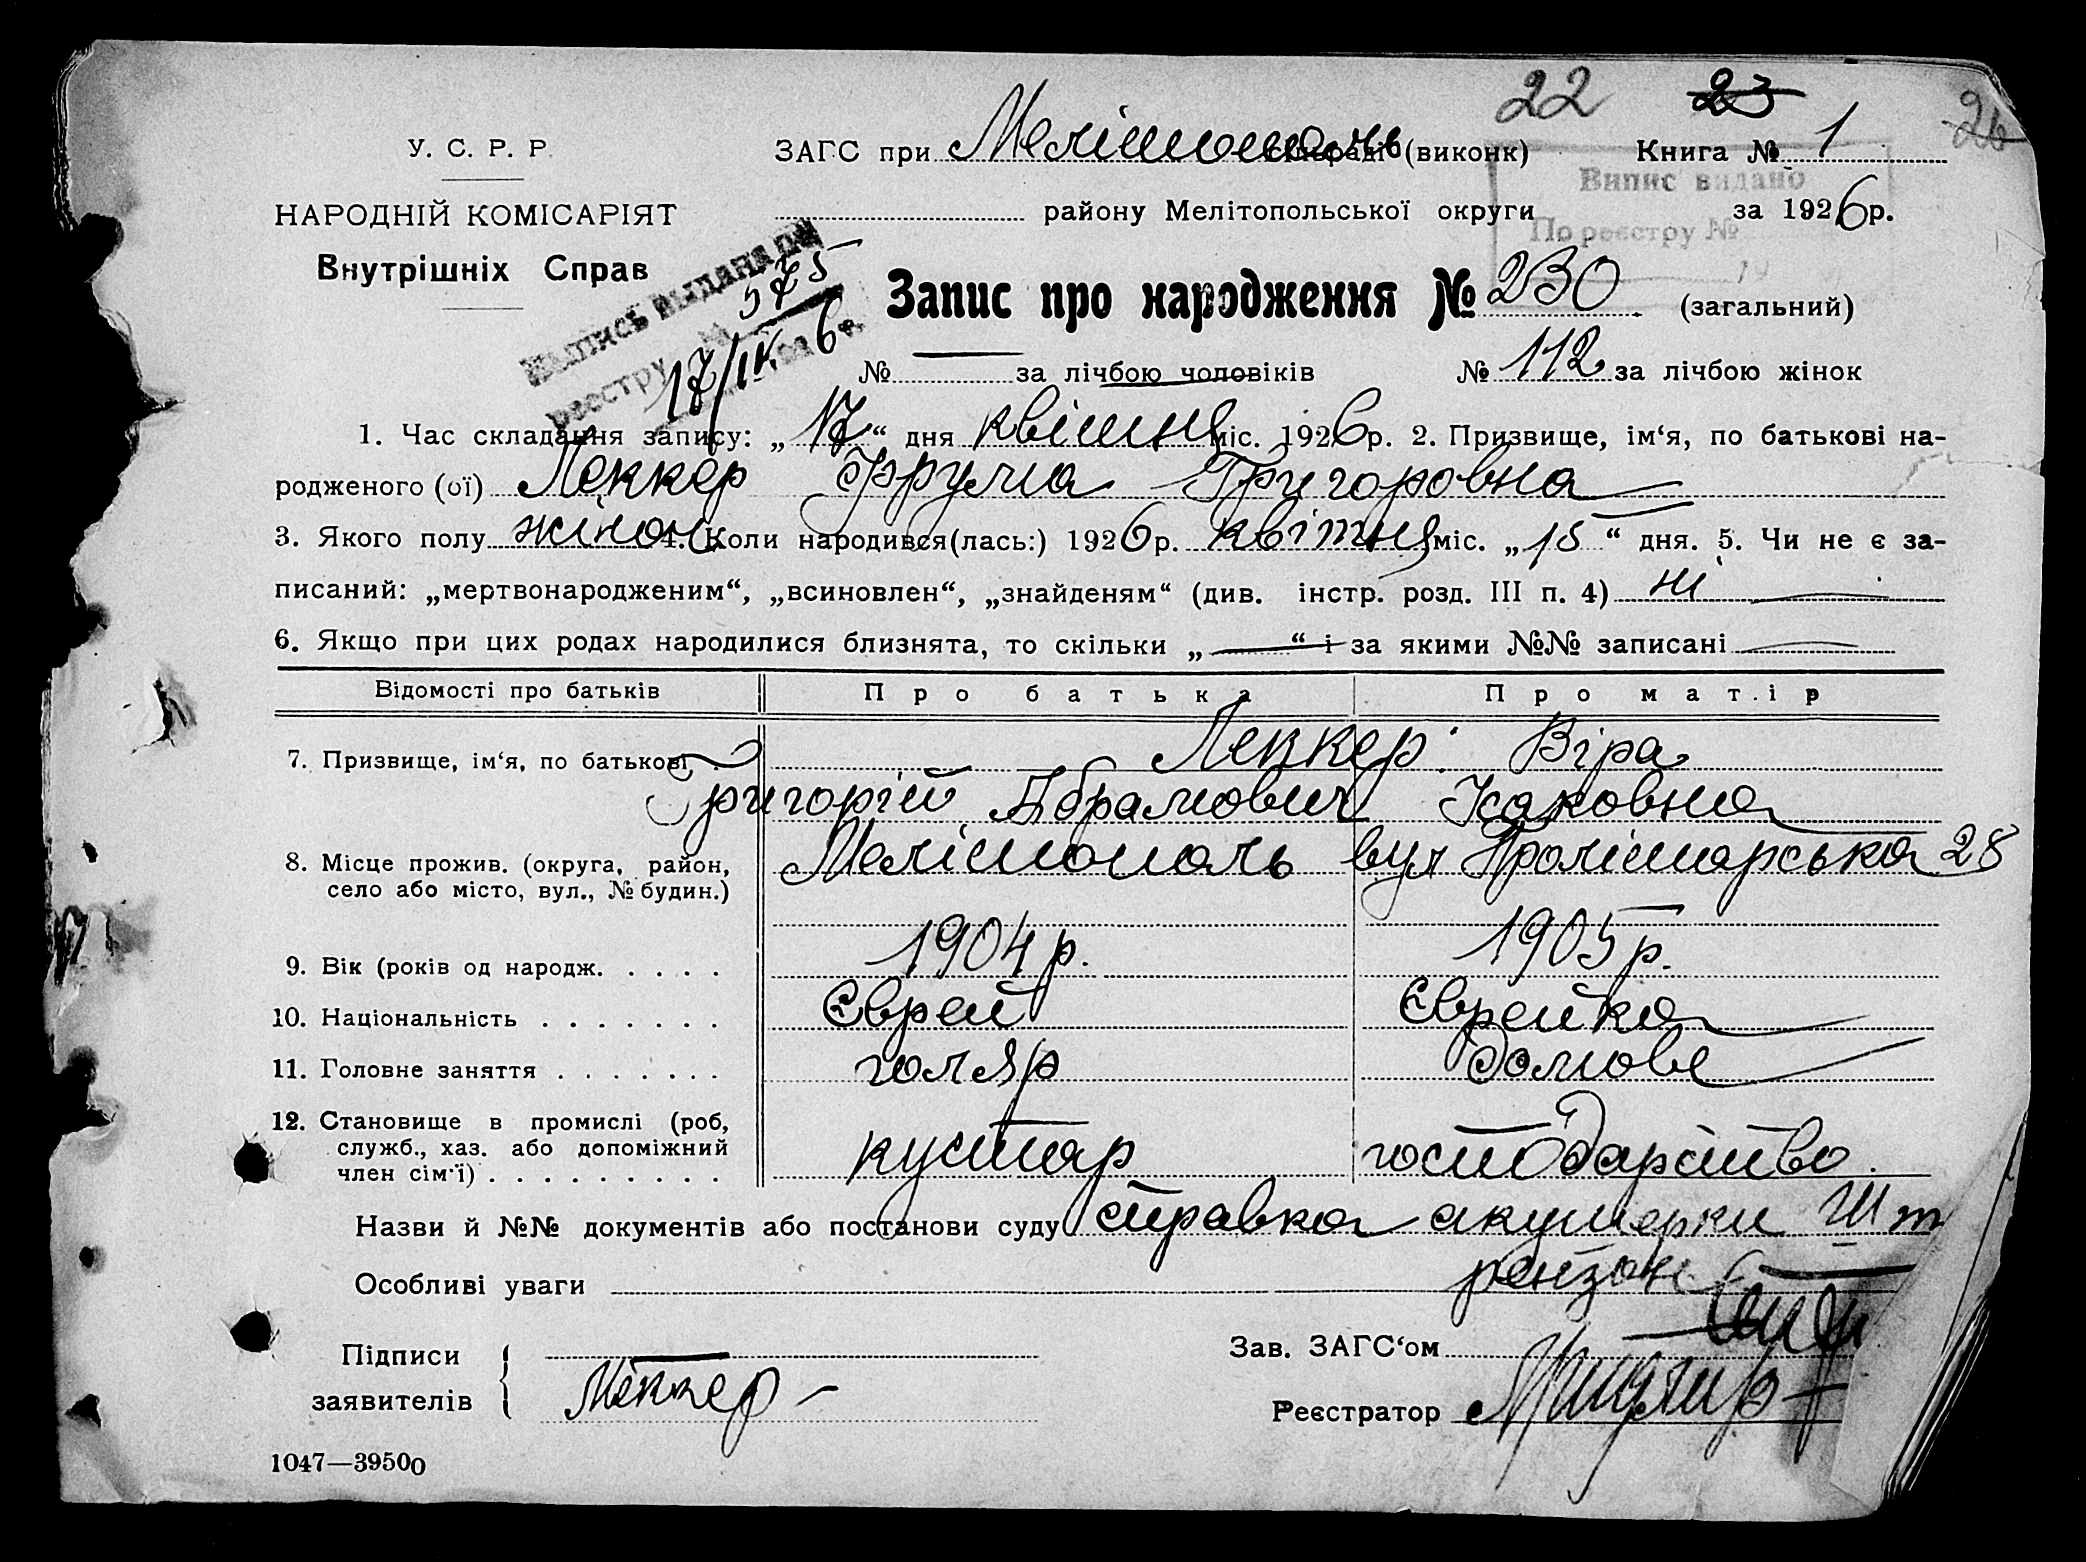 22 23 26
У. С. Р. Р.
ЗАГС при Мелітополь сільраді (виконк) Книга № 1
Випис видано
НАРОДНІЙ КОМІСАРІЯТ
району Мелітопольської округи за 1926 р.
По реєстру №
19
Внутрішніх Справ
Выпись выдана по
реестру № 575
17/IV 6 г.
Запис про народження № 230 (загальний)
№ за лічбою чоловіків № 112 за лічбою жінок
1. Час складання запису: „17“ дня квітня міс. 1926 р. 2. Призвище, ім‘я, по батькові на-
родженого (ої) Леккер Фрума Григоровна
3. Якого полу жіноч 4. Коли народився(лась:) 1926 р. квітня міс. „15“ дня. 5. Чи не є за-
писаний: „мертвонародженим“, „всиновлен“, „знайденям“ (див. інстр. розд. III п. 4) ні
6. Якщо при цих родах народилися близнята, то скільки „ “ і за якими №№ записані
Відомості про батьків Про батька Про матір
7. Призвище, ім‘я, по батькові Леккер Віра
Григорій Абрамович Ісаковна
8. Місце прожив. (округа, район, Мелітополь вул Пролітарська 28
село або місто, вул., № будин.)
9. Вік (років од народж. . . . . 1904 р. 1905 р.
10. Національність . . . . . . . Єврей Єврейка
11. Головне заняття . . . . . . . голяр домове
12. Становище в промислі (роб,
служб., хаз. або допоміжний кустар господарство
член сім‘ї) . . . . . . . . .
Назви й №№ документів або постанови суду справка акушерки Шт
Особливі уваги
Підписи Зав. ЗАГС‘ом
заявителів Леккер Реєстратор
1047—39500